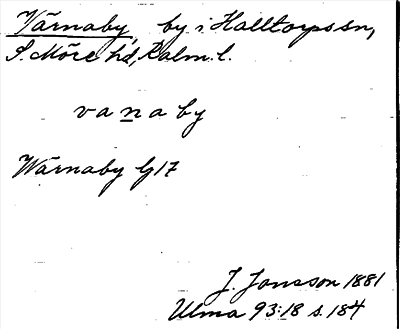 Värnaby, by i Halltorps sn,
S. Möre hd, Kalm. l.
vanaby
Wärnaby Gj 17
J. Jonsson 1881
Ulma 93:18 s. 184